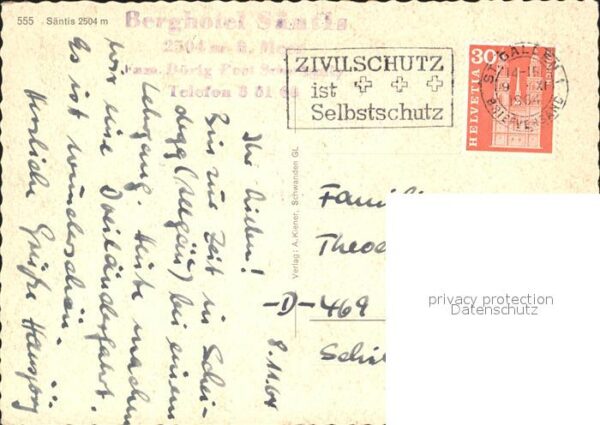 555 Säntis 2504 m
Berghotel Säntis
2504 m ü. Meer
Fam. Dörig Post
Telefon 8 81 64
ZIVILSCHUTZ
ist
Selbstschutz
HELVETIA 30
ST. GALLEN 1
BRIEFVERSAND
Verlag: A. Kiener, Schwanden GL
8.11.64
Ihr Lieben!
Bin zur Zeit in Schei-
degg (Allgäu) bei einem
Lehrgang. Heute machen
wir eine Dreiländerfahrt.
Es ist wunderschön.
Herzliche Grüße Hansjörg
Famil
Theo
-D- 469
privacy protection
Datenschutz